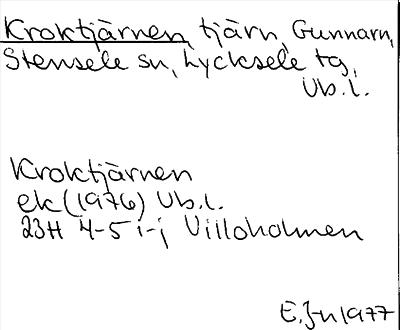 Kroktjärnen, tjärn, Gunnarn,
Stensele sn, Lycksele tg,
Vb.l.
Kroktjärnen
ek (1976) Vb.l.
23H 4-5 i-j Villoholmen
E.Jn 1977